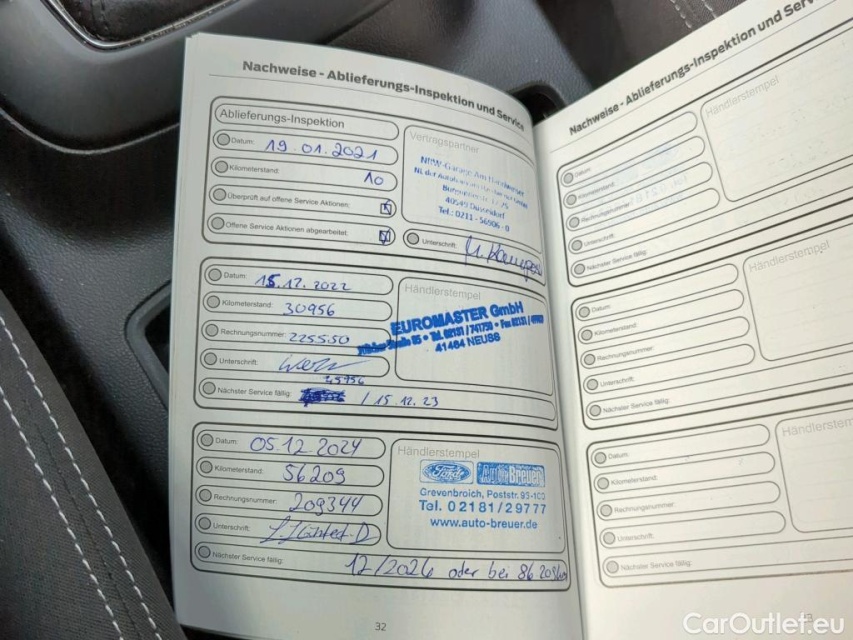 Nachweise - Ablieferungs-Inspektion und Service
Ablieferungs-Inspektion
Datum: 19.01.2021
Kilometerstand: 10
Überprüft auf offene Service Aktionen:
Offene Service Aktionen abgearbeitet:
Vertragspartner
NRW-Garage Am Handweiser
40549 Düsseldorf
Tel.: 0211 - 56906 - 0
Unterschrift:
Datum: 15.12.2022
Kilometerstand: 30956
Rechnungsnummer: 225550
Unterschrift:
45956
Nächster Service fällig: / 15.12.23
Händlerstempel
EUROMASTER GmbH
Tel. 02131 / 741750 • Fax 02131 /
41464 NEUSS
Datum: 05.12.2024
Kilometerstand: 56209
Rechnungsnummer: 209344
Unterschrift:
Nächster Service fällig: 12/2026 oder bei 86 209km
Händlerstempel
Ford Auto Breuer
Grevenbroich, Poststr. 93-100
Tel. 02181/29777
www.auto-breuer.de
32
Nachweise - Ablieferungs-Inspektion und Serv
Datum:
Kilometerstand:
Rechnungsnummer:
Unterschrift:
Nächster Service fällig:
Händlerstempel
Datum:
Kilometerstand:
Rechnungsnummer:
Unterschrift:
Nächster Service fällig:
Händlerstempel
Datum:
Kilometerstand:
Rechnungsnummer:
Unterschrift:
Nächster Service fällig:
Händlerstem
CarOutlet.eu